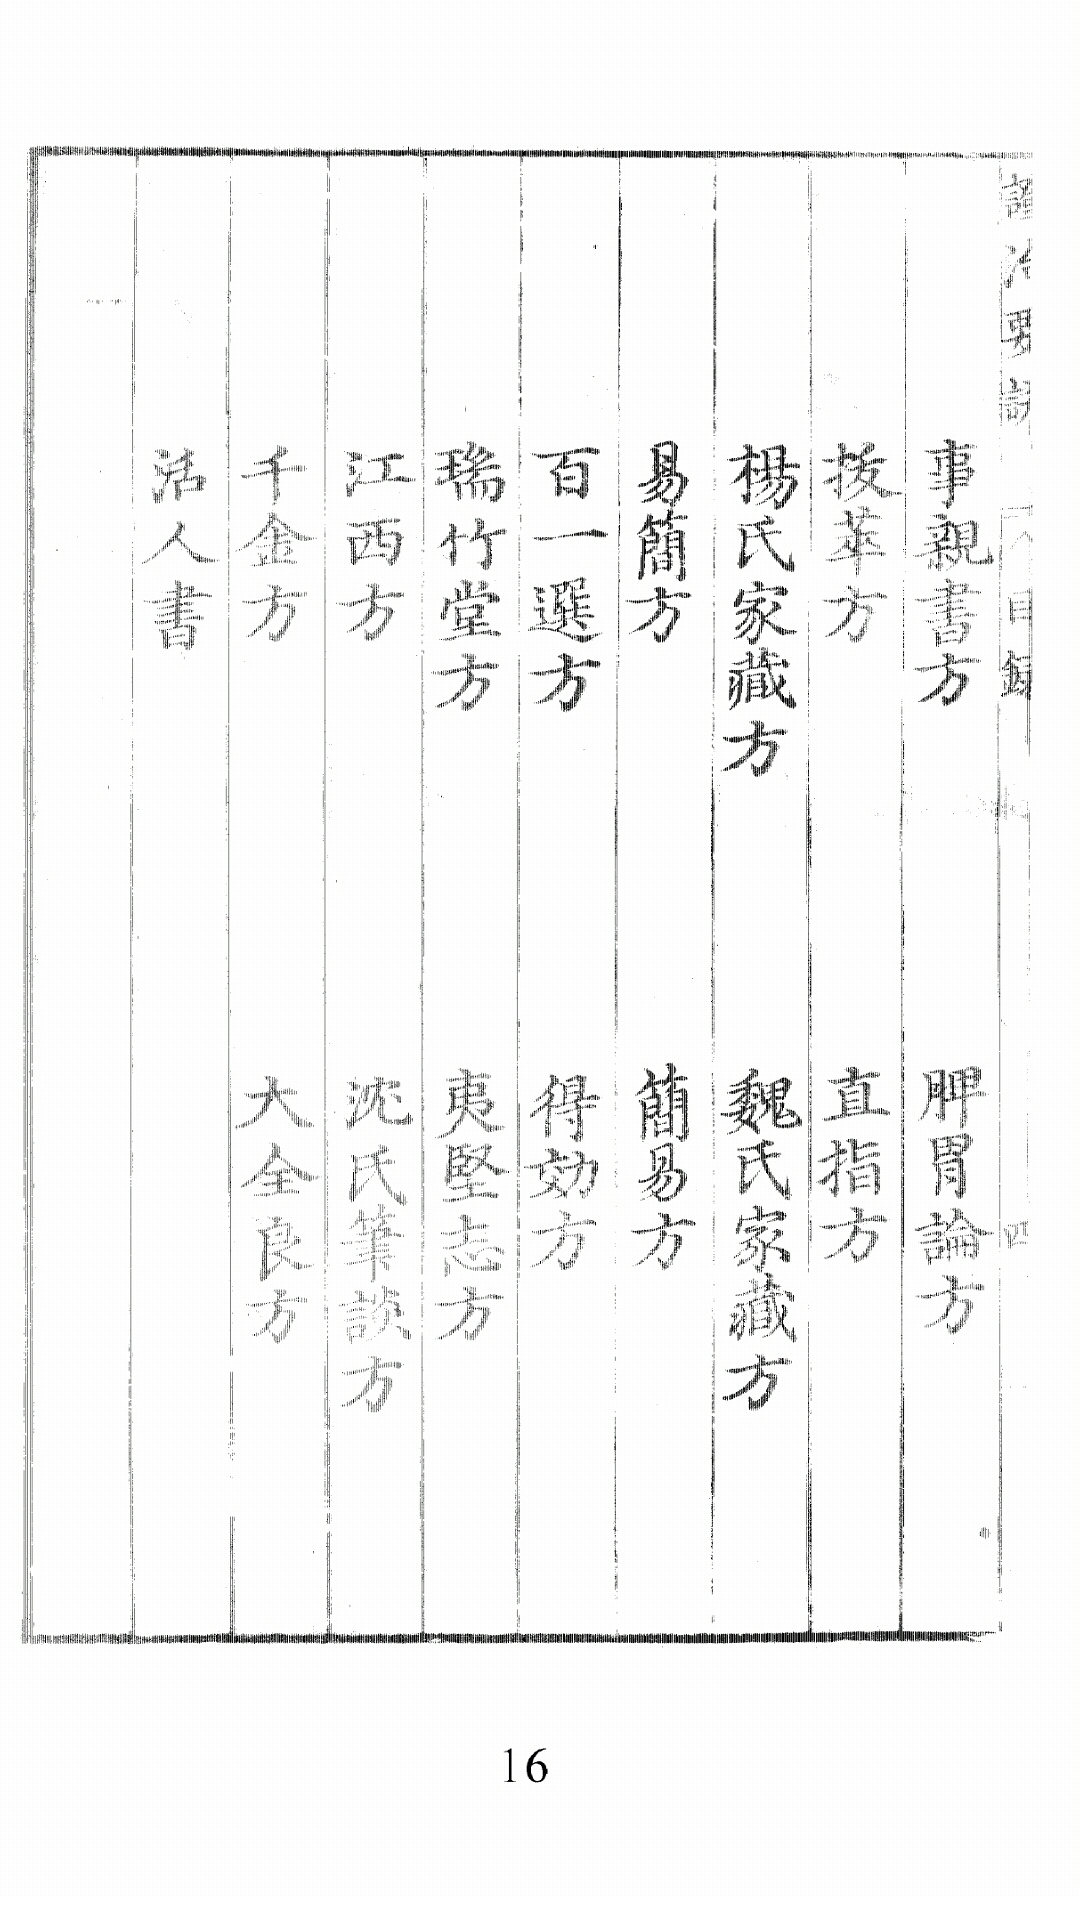 證治要訣 目錄 四
事親書方 脾胃論方
拔萃方 直指方
楊氏家藏方 魏氏家藏方
易簡方 簡易方
百一選方 得効方
瑞竹堂方 夷堅志方
江西方 沈氏筆談方
千金方 大全良方
活人書
16